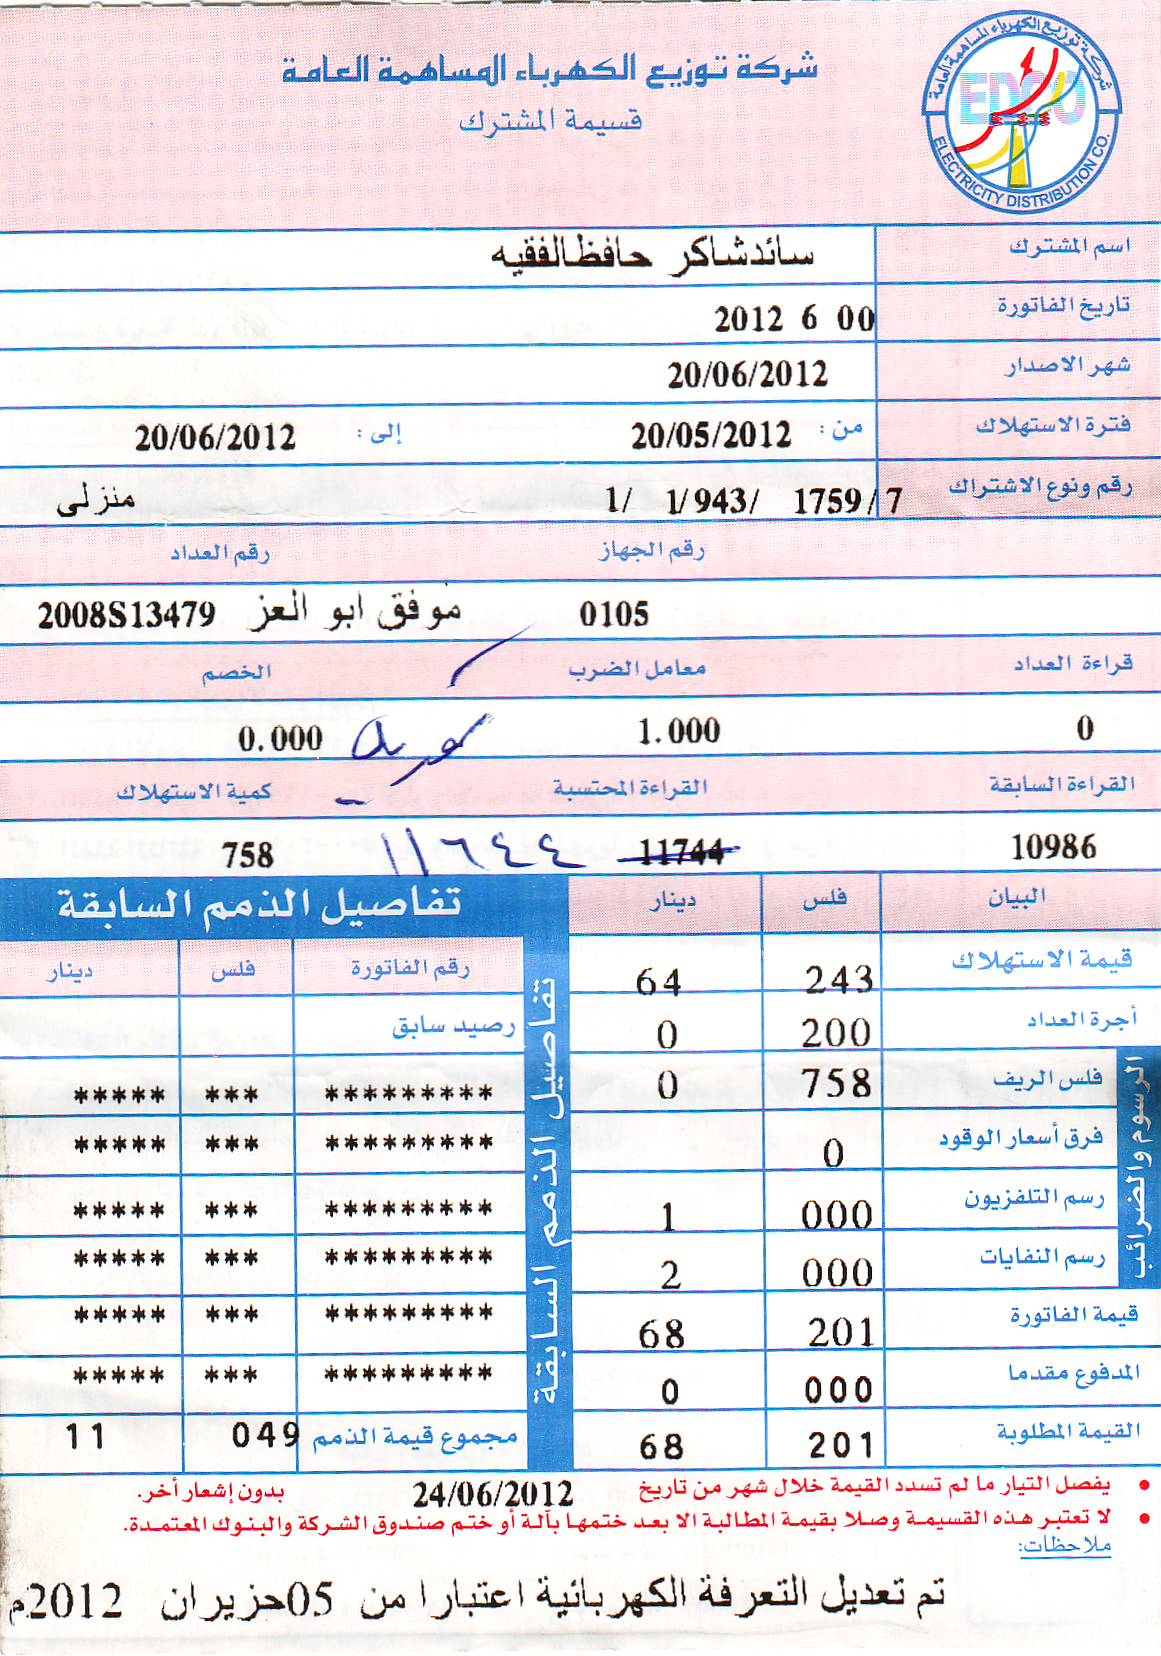 شركة توزيع الكهرباء المساهمة العامة
قسيمة المشترك
شركة توزيع الكهرباء المساهمة العامة
EDCO
ELECTRICITY DISTRIBUTION CO.
اسم المشترك سائدشاكر حافظالفقيه
تاريخ الفاتورة 00 6 2012
شهر الاصدار 20/06/2012
فترة الاستهلاك من : 20/05/2012 إلى : 20/06/2012
رقم ونوع الاشتراك 1/ 1/943/ 1759/7 منزلى
رقم الجهاز رقم العداد
0105 موفق ابو العز 2008S13479
قراءة العداد معامل الضرب الخصم
0 1.000 0.000
القراءة السابقة القراءة المحتسبة كمية الاستهلاك
10986 11744 ١١٦٤٤ 758
البيان فلس دينار
قيمة الاستهلاك 243 64
أجرة العداد 200 0
الرسوم والضرائب
فلس الريف 758 0
فرق أسعار الوقود 0
رسم التلفزيون 000 1
رسم النفايات 000 2
قيمة الفاتورة 201 68
المدفوع مقدما 000 0
القيمة المطلوبة 201 68
تفاصيل الذمم السابقة
تفاصيل الذمم السابقة
رقم الفاتورة فلس دينار
رصيد سابق
********* *** *****
********* *** *****
********* *** *****
********* *** *****
********* *** *****
********* *** *****
مجموع قيمة الذمم 049 11
• يفصل التيار ما لم تسدد القيمة خلال شهر من تاريخ 24/06/2012 بدون إشعار أخر.
• لا تعتبر هذه القسيمة وصلا بقيمة المطالبة الا بعد ختمها بآلة أو ختم صندوق الشركة والبنوك المعتمدة.
ملاحظات:
تم تعديل التعرفة الكهربائية اعتبارا من 05حزيران 2012م